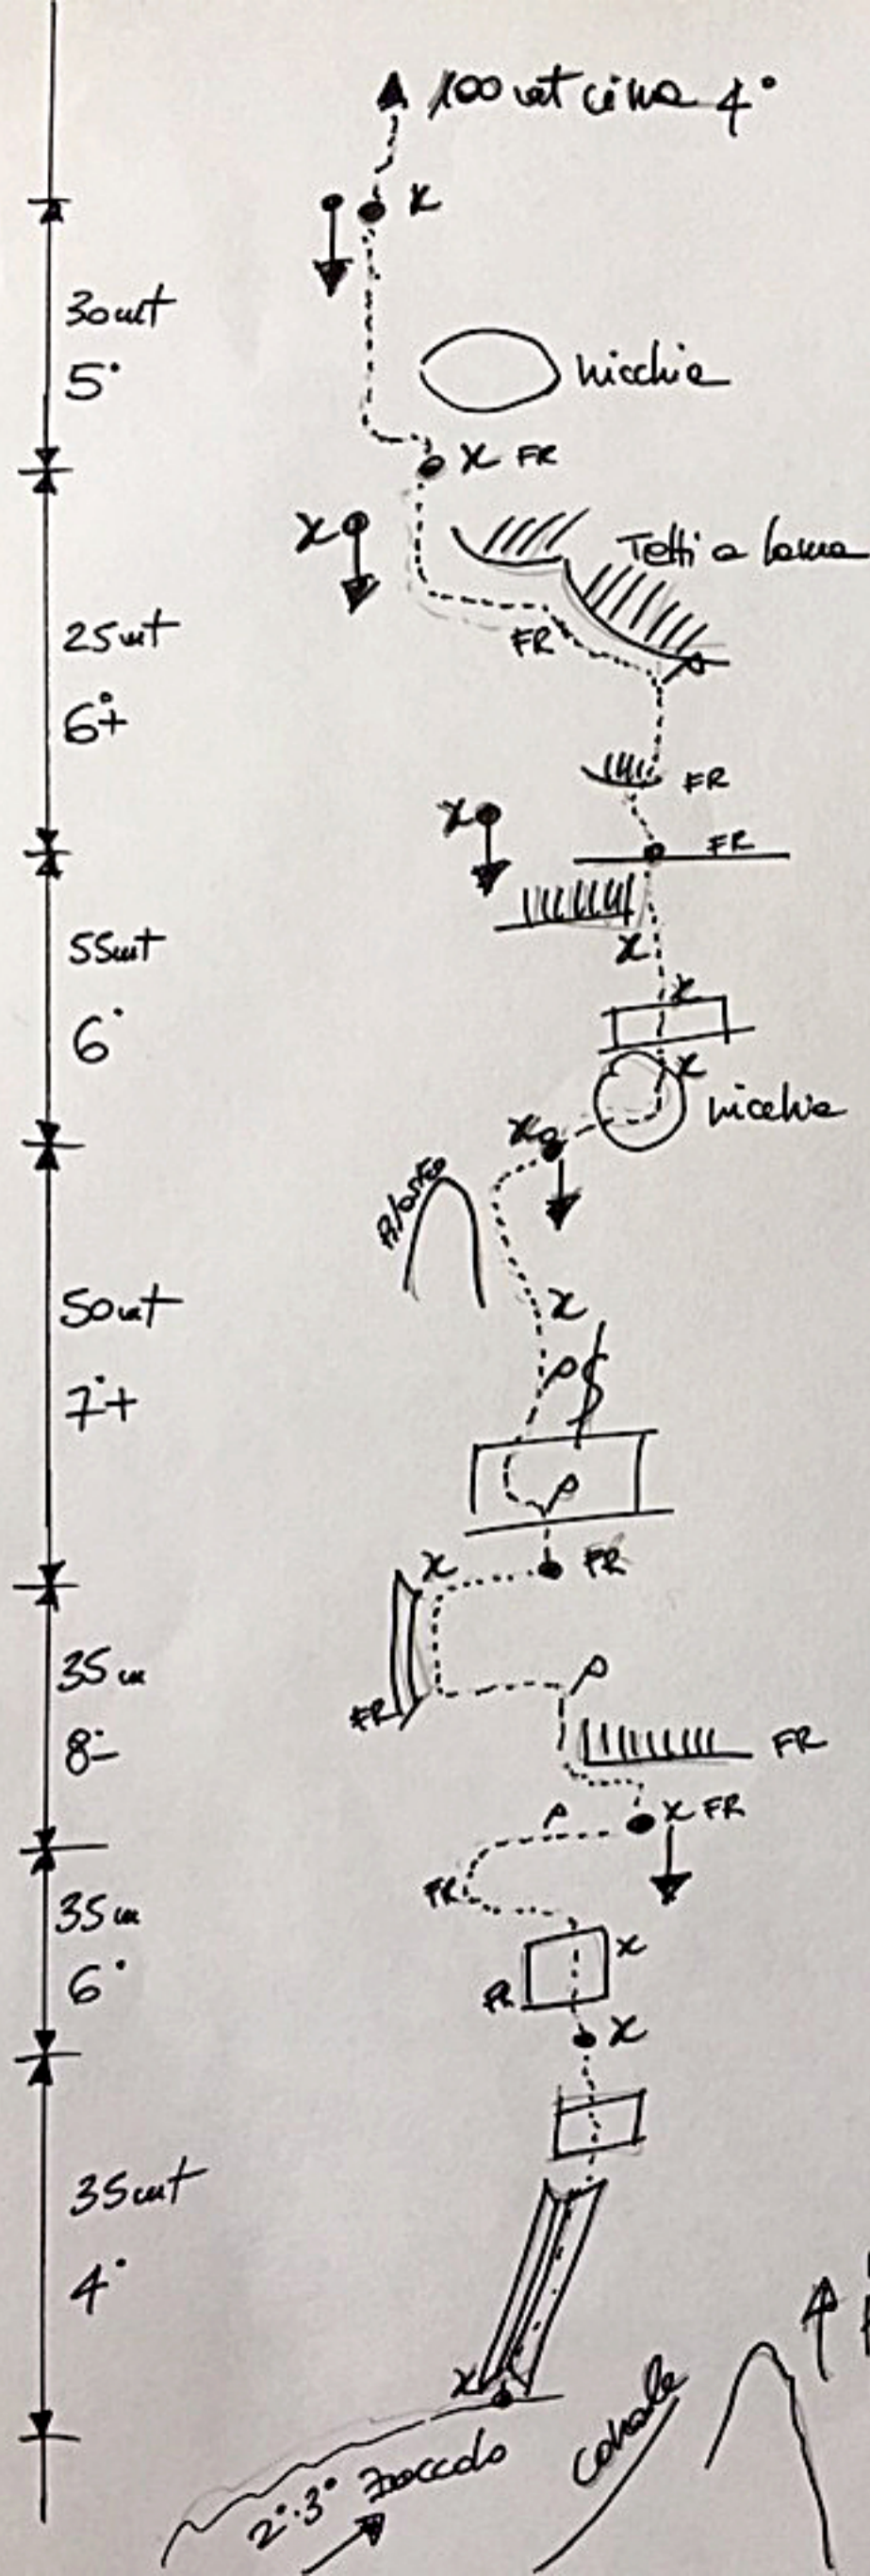 100 mt cima 4°
x
30mt
5°
nicchia
x FR
x
Tetti a lama
25mt
6°+
FR
FR
x
FR
55mt
x
6°
x
x
nicchia
x
Pilastro
50mt
x
7°+
FR
x
35m
FR
8°-
FR
x FR
FR
35m
x
6°
FR
x
35mt
4°
x
canale
2°.3° zoccolo